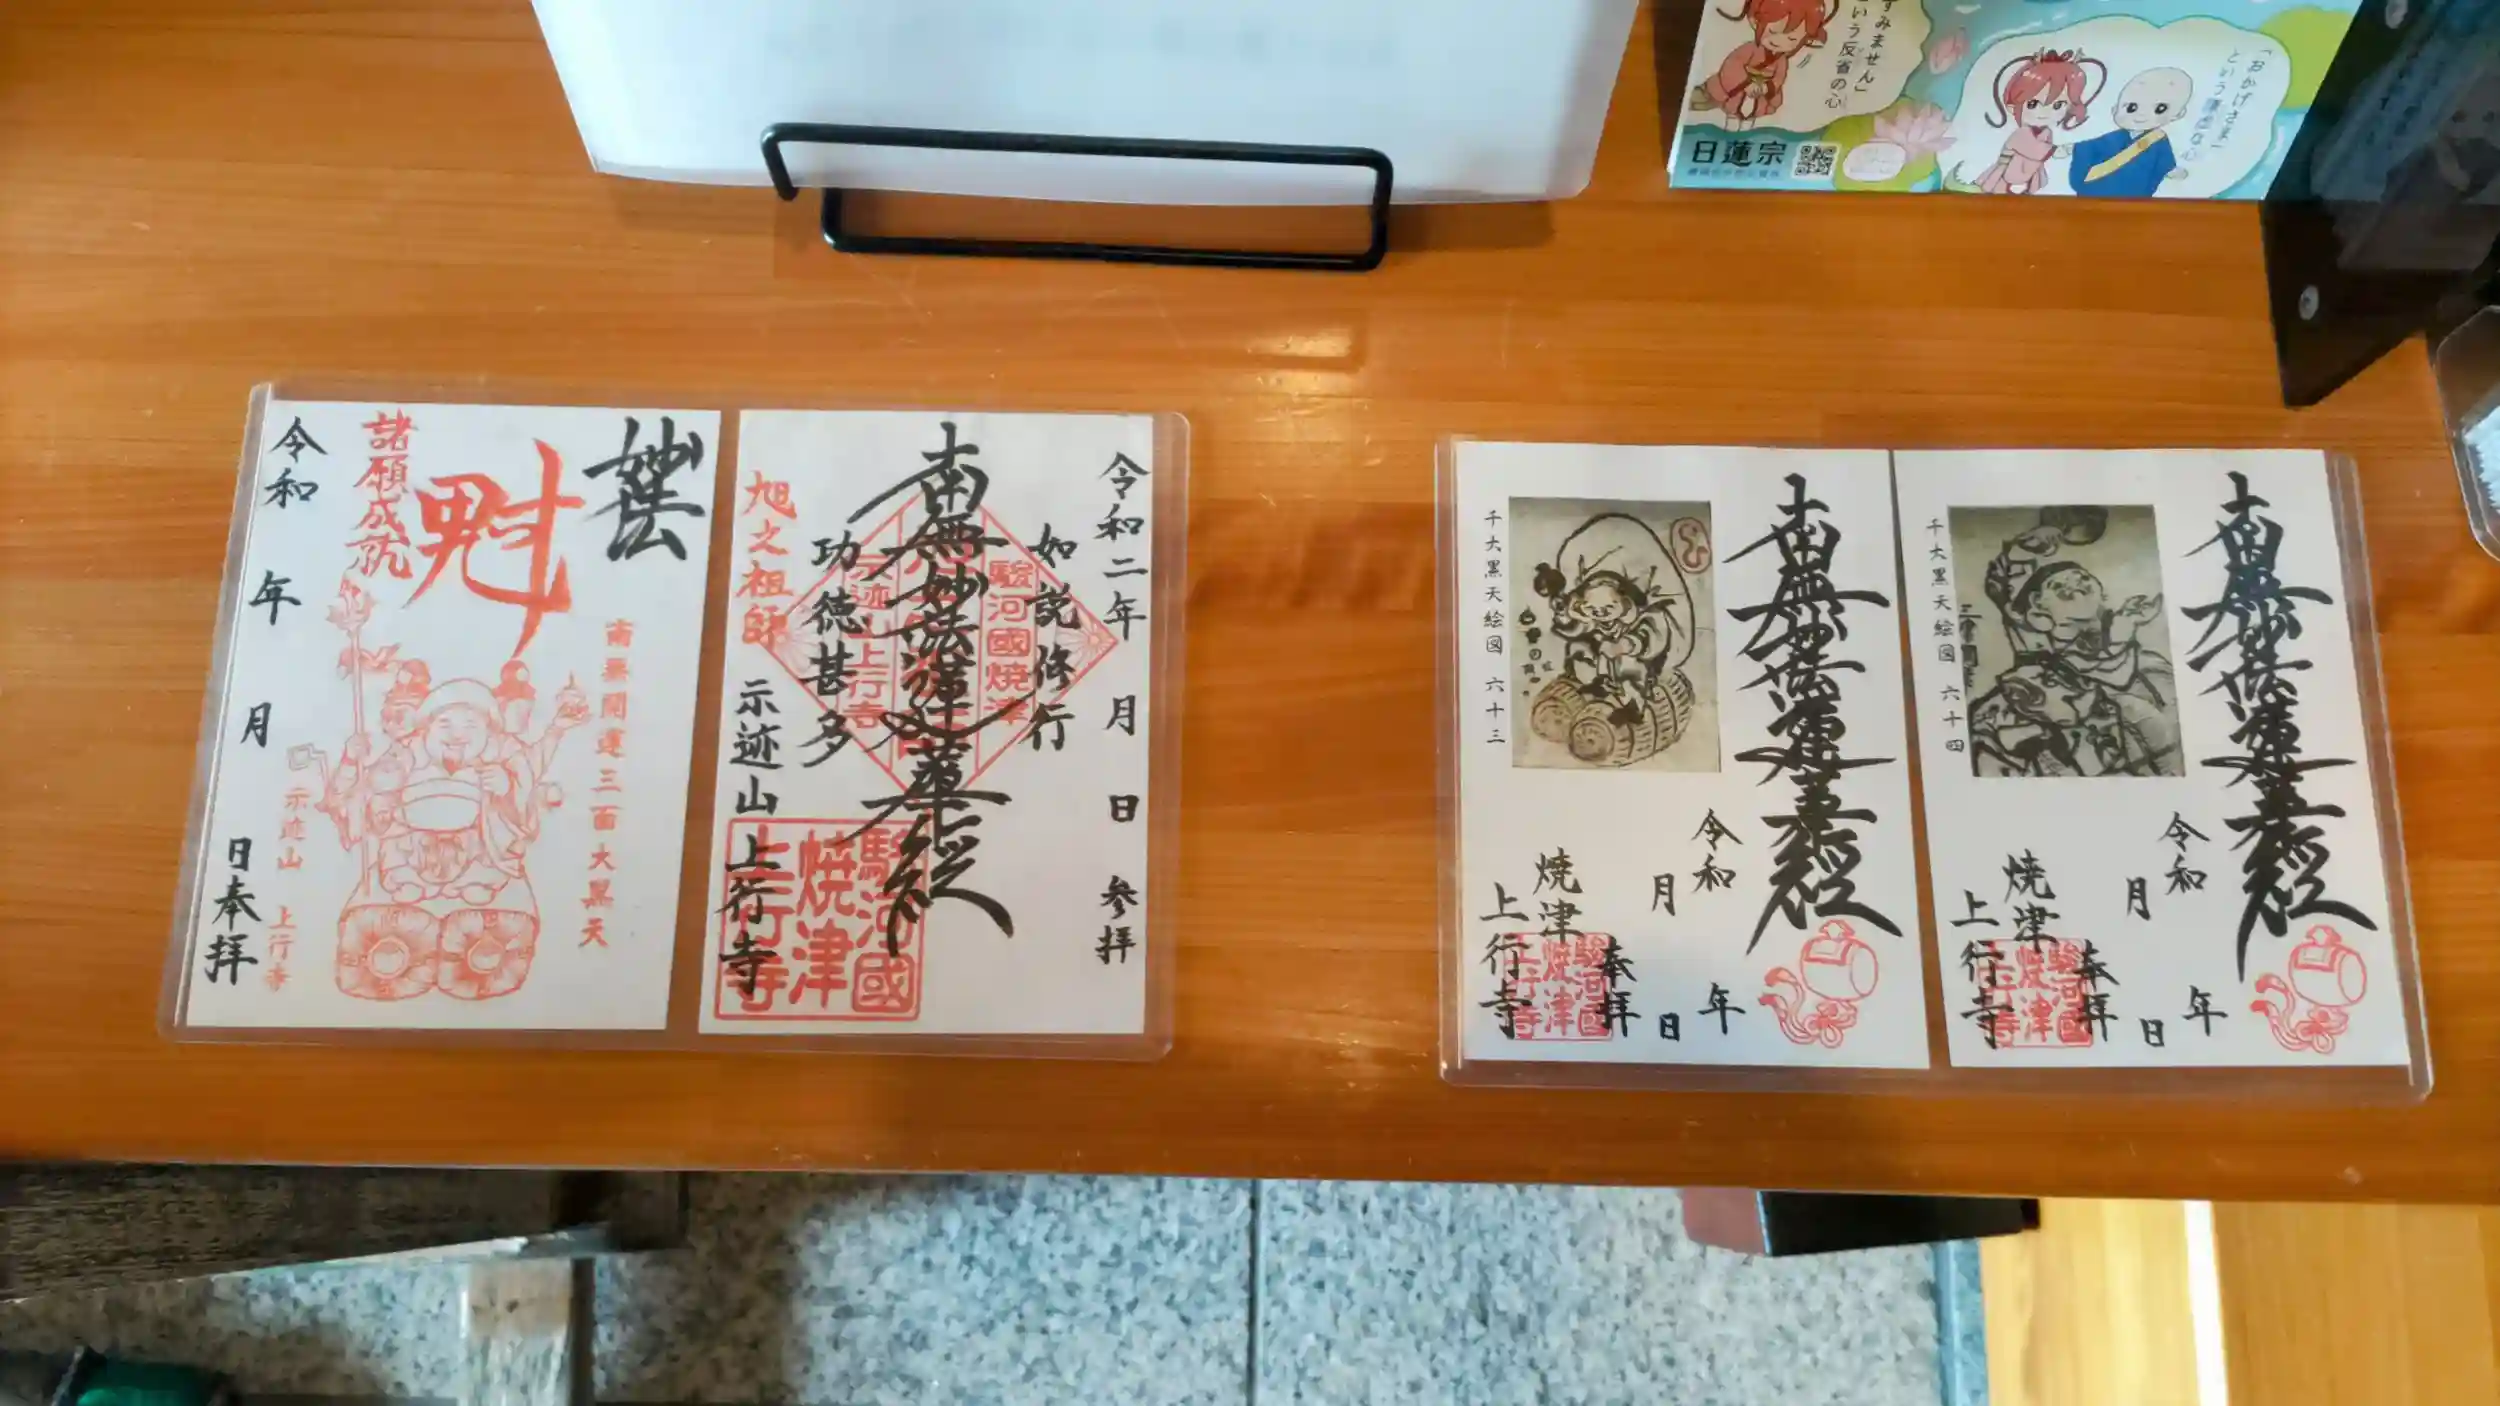 すみません」
という反省の心
「おかげさま」
という謙虚な心
日蓮宗
妙法
魁
諸願成就
南無開運三面大黒天
示迹山 上行寺
令和 年 月 日奉拝
令和二年 月 日 参拝
如説修行
南無妙法蓮華経
功徳甚多
旭之祖師
示迹山 上行寺
駿河國焼津
示迹山上行寺
駿河國
焼津
上行寺
南無妙法蓮華経
千大黒天絵図 六十三
令和 年
月 日
奉拝
焼津
上行寺
駿河國
焼津
上行寺
南無妙法蓮華経
千大黒天絵図 六十四
令和 年
月 日
奉拝
焼津
上行寺
駿河國
焼津
上行寺